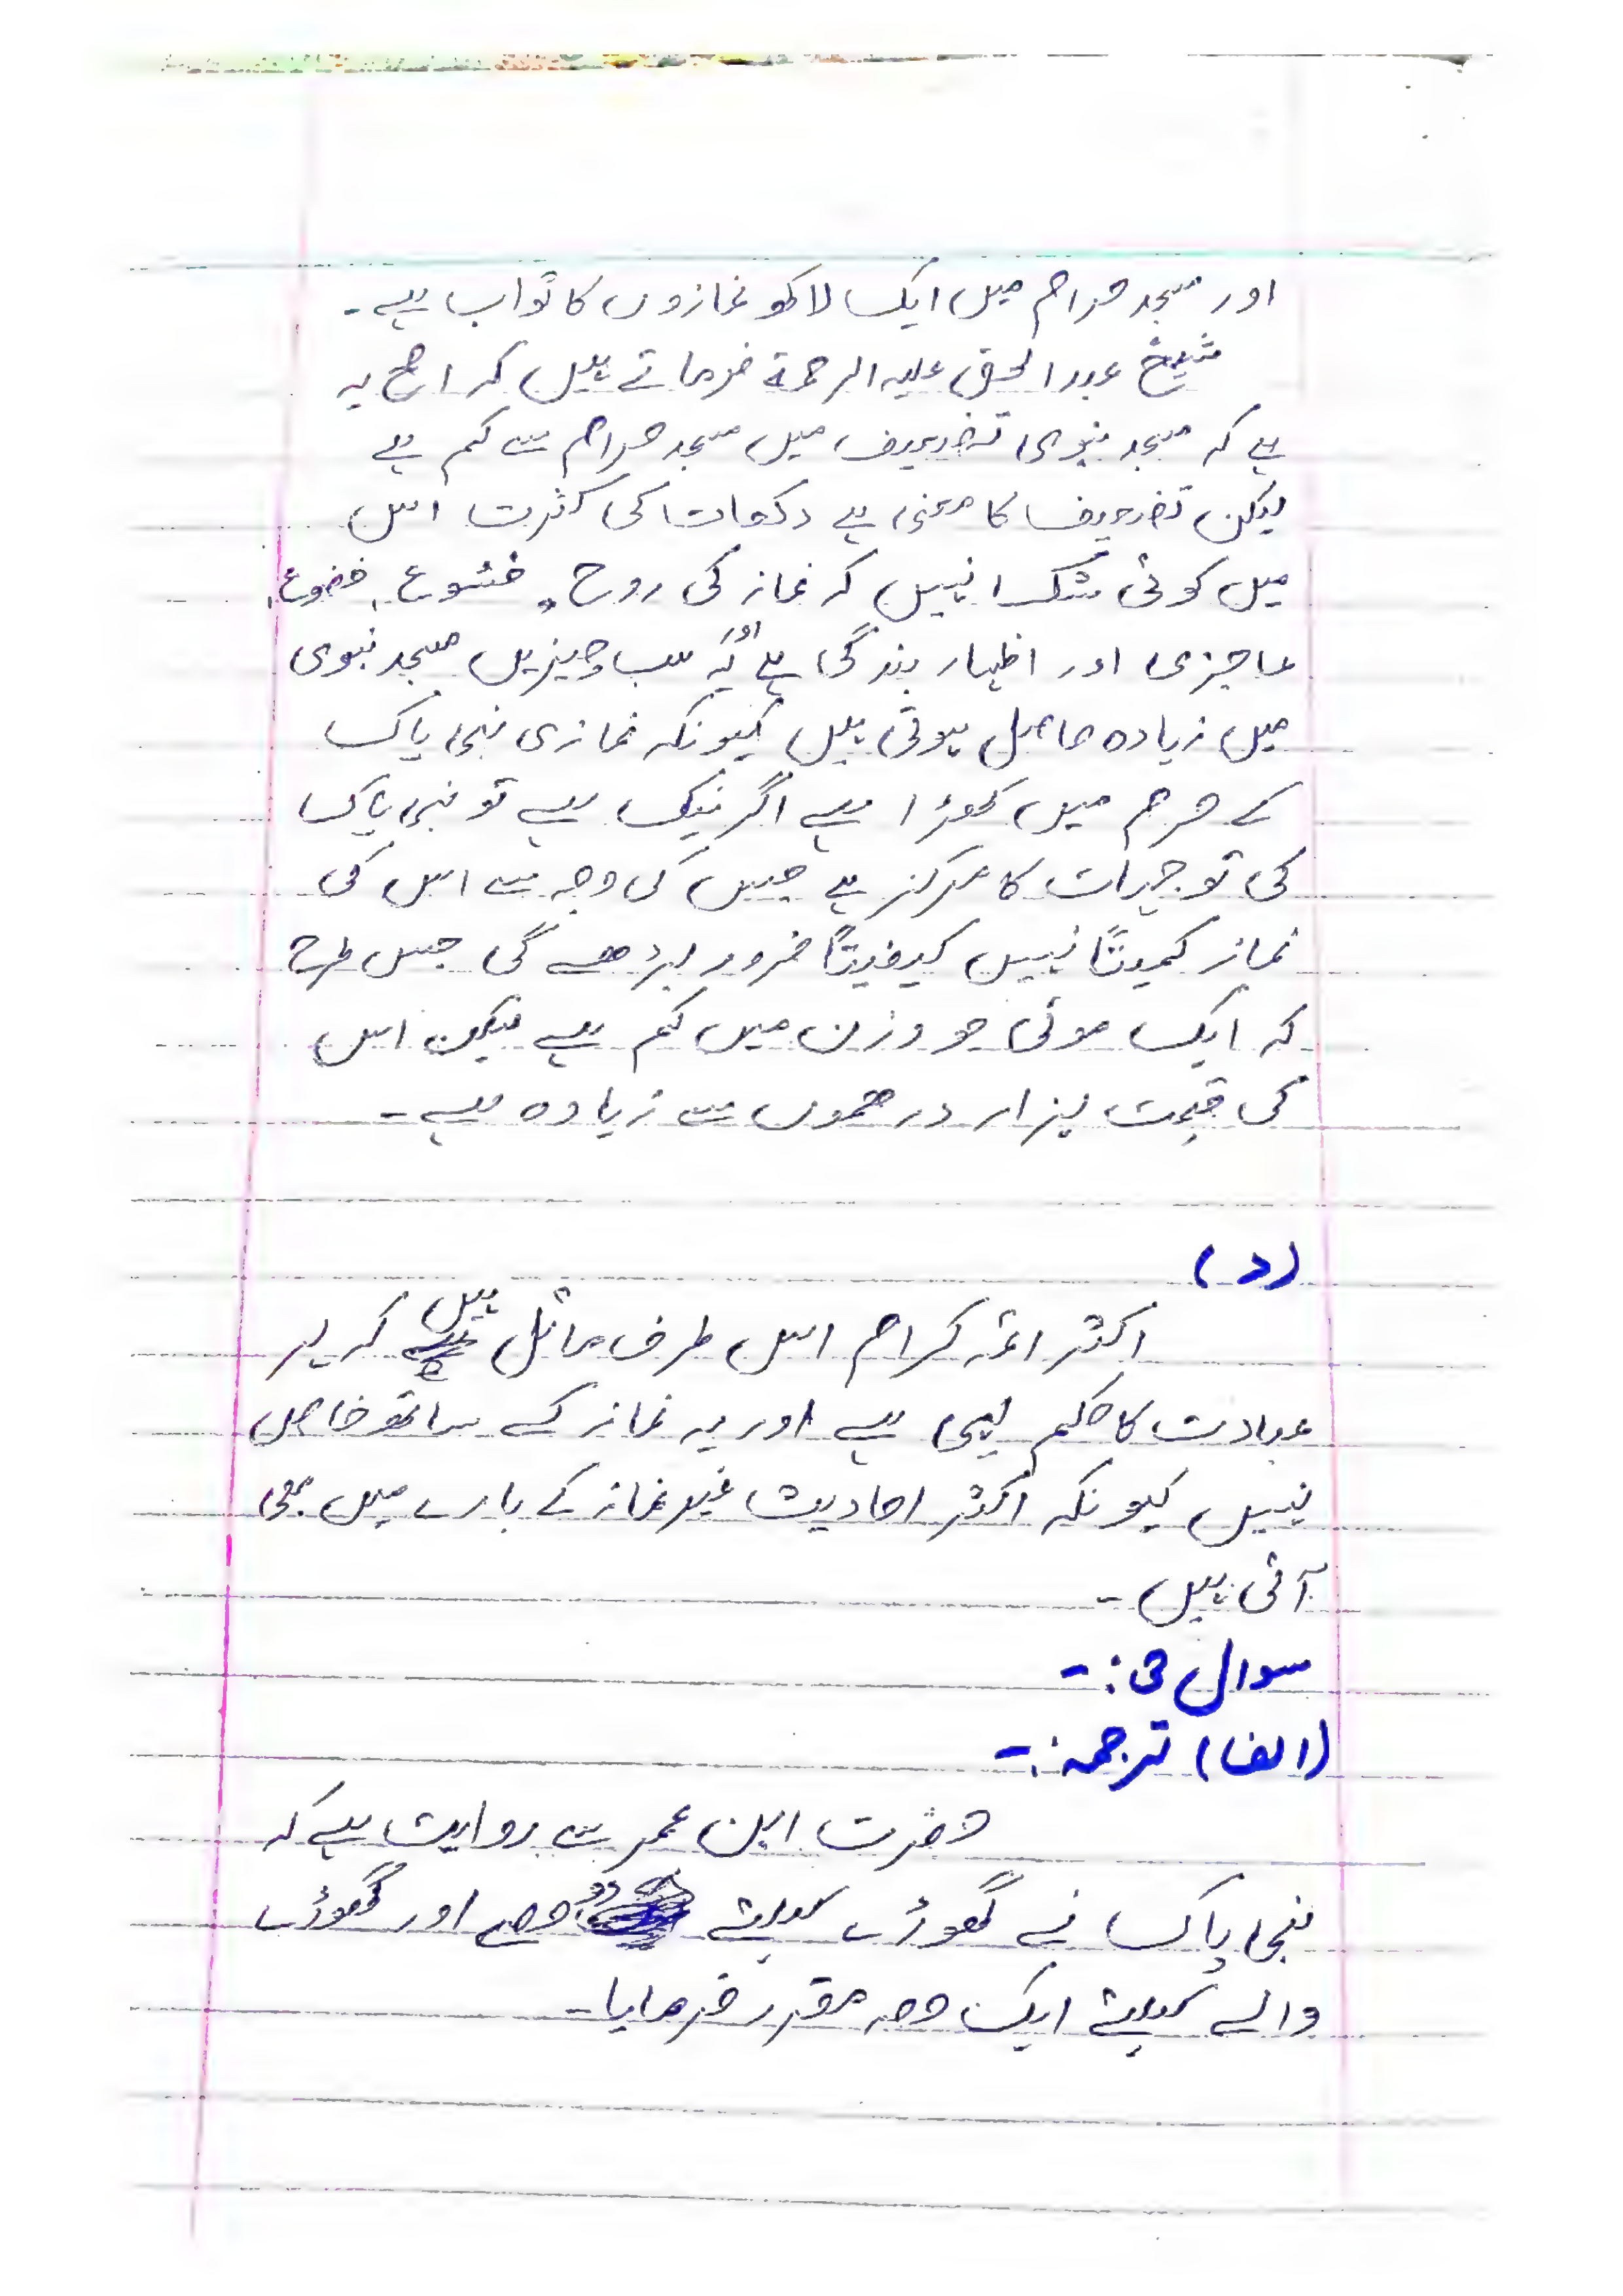 اور مسجد حرام میں ایک لاکھ نمازوں کا ثواب ہے۔
شیخ عبدالحق علیہ الرحمۃ فرماتے ہیں کہ اصح یہ
ہے کہ مسجد نبوی تضعیف میں مسجد حرام سے کم ہے
لیکن تضعیف کا معنی ہے رکعات کی کثرت اس
میں کوئی شک نہیں کہ نماز کی روح، خشوع، خضوع،
عاجزی اور اظہار بندگی ہے اور یہ سب چیزیں مسجد نبوی
میں زیادہ حاصل ہوتی ہیں کیونکہ نمازی نبی پاک
کے حرم میں کھڑا ہے اگر نیک ہے تو نبی پاک
کی توجہات کا مرکز ہے جس کی وجہ سے اس کی
نماز کمیتاً نہیں کیفیتاً ضرور بڑھے گی جس طرح
کہ ایک موتی جو وزن میں کم ہے لیکن اس
کی قیمت ہزار درھموں سے زیادہ ہے۔
(د)
اکثر ائمہ کرام اس طرف مائل ہیں کہ ہر
عبادت کا حکم یہی ہے اور یہ نماز کے ساتھ خاص
نہیں کیونکہ اکثر احادیث غیر نماز کے بارے میں بھی
آئی ہیں۔
سوال :-
(الف) ترجمہ :-
حضرت ابن عمر سے روایت ہے کہ
نبی پاک نے گھوڑے کیلئے دو حصے اور گھوڑے
والے کیلئے ایک حصہ مقرر فرمایا۔